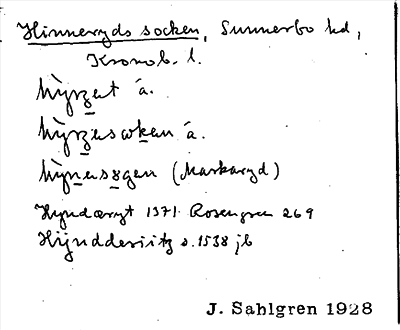 Hinneryds socken, Sunnerbo hd,
Kronob. l.
hỳnet a.
hỳnesoken a.
(Markaryd)
Hyndæryt 1371 Rosengren 269
Hijndderiitz s. 1538 jb
J. Sahlgren 1928